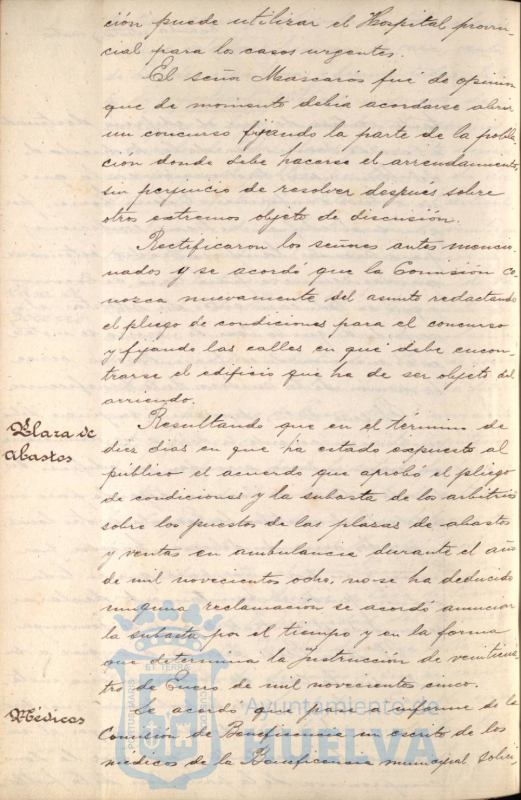 ción puede utilizar el Hospital provin-
cial para los casos urgentes.
El señor Mascarós fué de opinion
que de momento debia acordarse abrir
un concurso fijando la parte de la pobla-
ción donde debe hacerse el arrendamiento,
sin perjuicio de resolver después sobre
otros extremos objeto de discusión.
Rectificaron los señores antes mencio-
nados y se acordó que la Comisión co-
nozca nuevamente del asunto redactando
el pliego de condiciones para el concurso
y fijando las calles en que debe encon-
trarse el edificio que ha de ser objeto del
arriendo.
Plaza de
Abastos
Resultando que en el término de
diez dias en que ha estado expuesto al
público el acuerdo que aprobó el pliego
de condiciones y la subasta de los arbitrios
sobre los puestos de las plazas de abastos
y ventas en ambulancia durante el año
de mil novecientos ocho, no se ha deducido
ninguna reclamacion se acordó anunciar
la subasta por el tiempo y en la forma
que determina la Instrucción de veinticua-
tro de Enero de mil novecientos cinco.
Médicos
Se acordó que pase a informe de la
Comision de Beneficencia un escrito de los
medicos de la Beneficencia municipal solici-
PORTUS MARIS
ET TERRAE
CUSTODIA
Ayuntamiento de
HUELVA